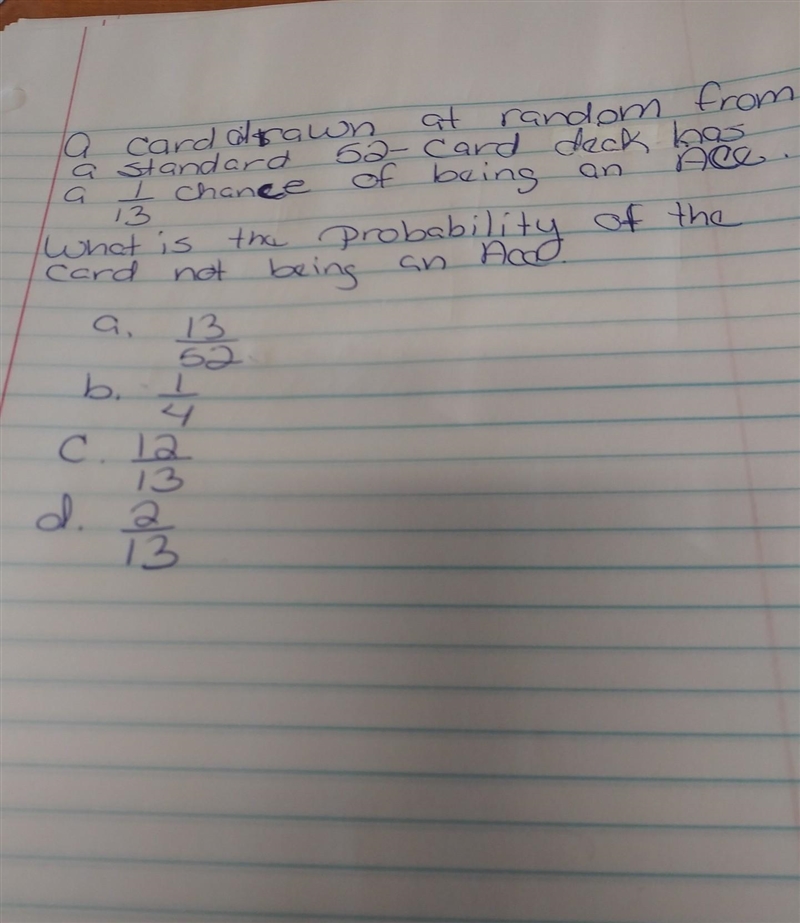 a card drawn at random from
a standard 52-card deck has
a 1/13 chance of being an Ace.
What is the probability of the
card not being an Ace.
a. 13/52
b. 1/4
c. 12/13
d. 2/13